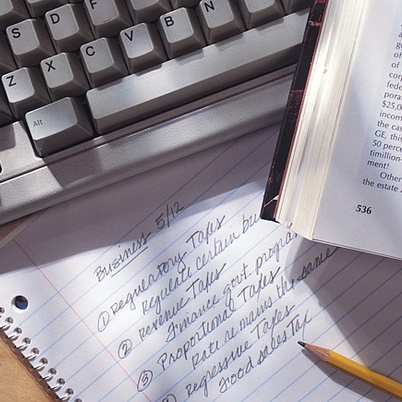 S D F G H J
Z X C V B N
Alt
Business 5/12
① Regulatory Taxes
Regulate certain bu
② Revenue Taxes
Finance govt. progra
③ Proportional Taxes
Rate remains the same
Regressive Taxes
Food sales Tax
of
corp
fede
pora
$25,0
incom
the cas
GE, this
50 perce
timillion-
ment!
Other
the estate
536